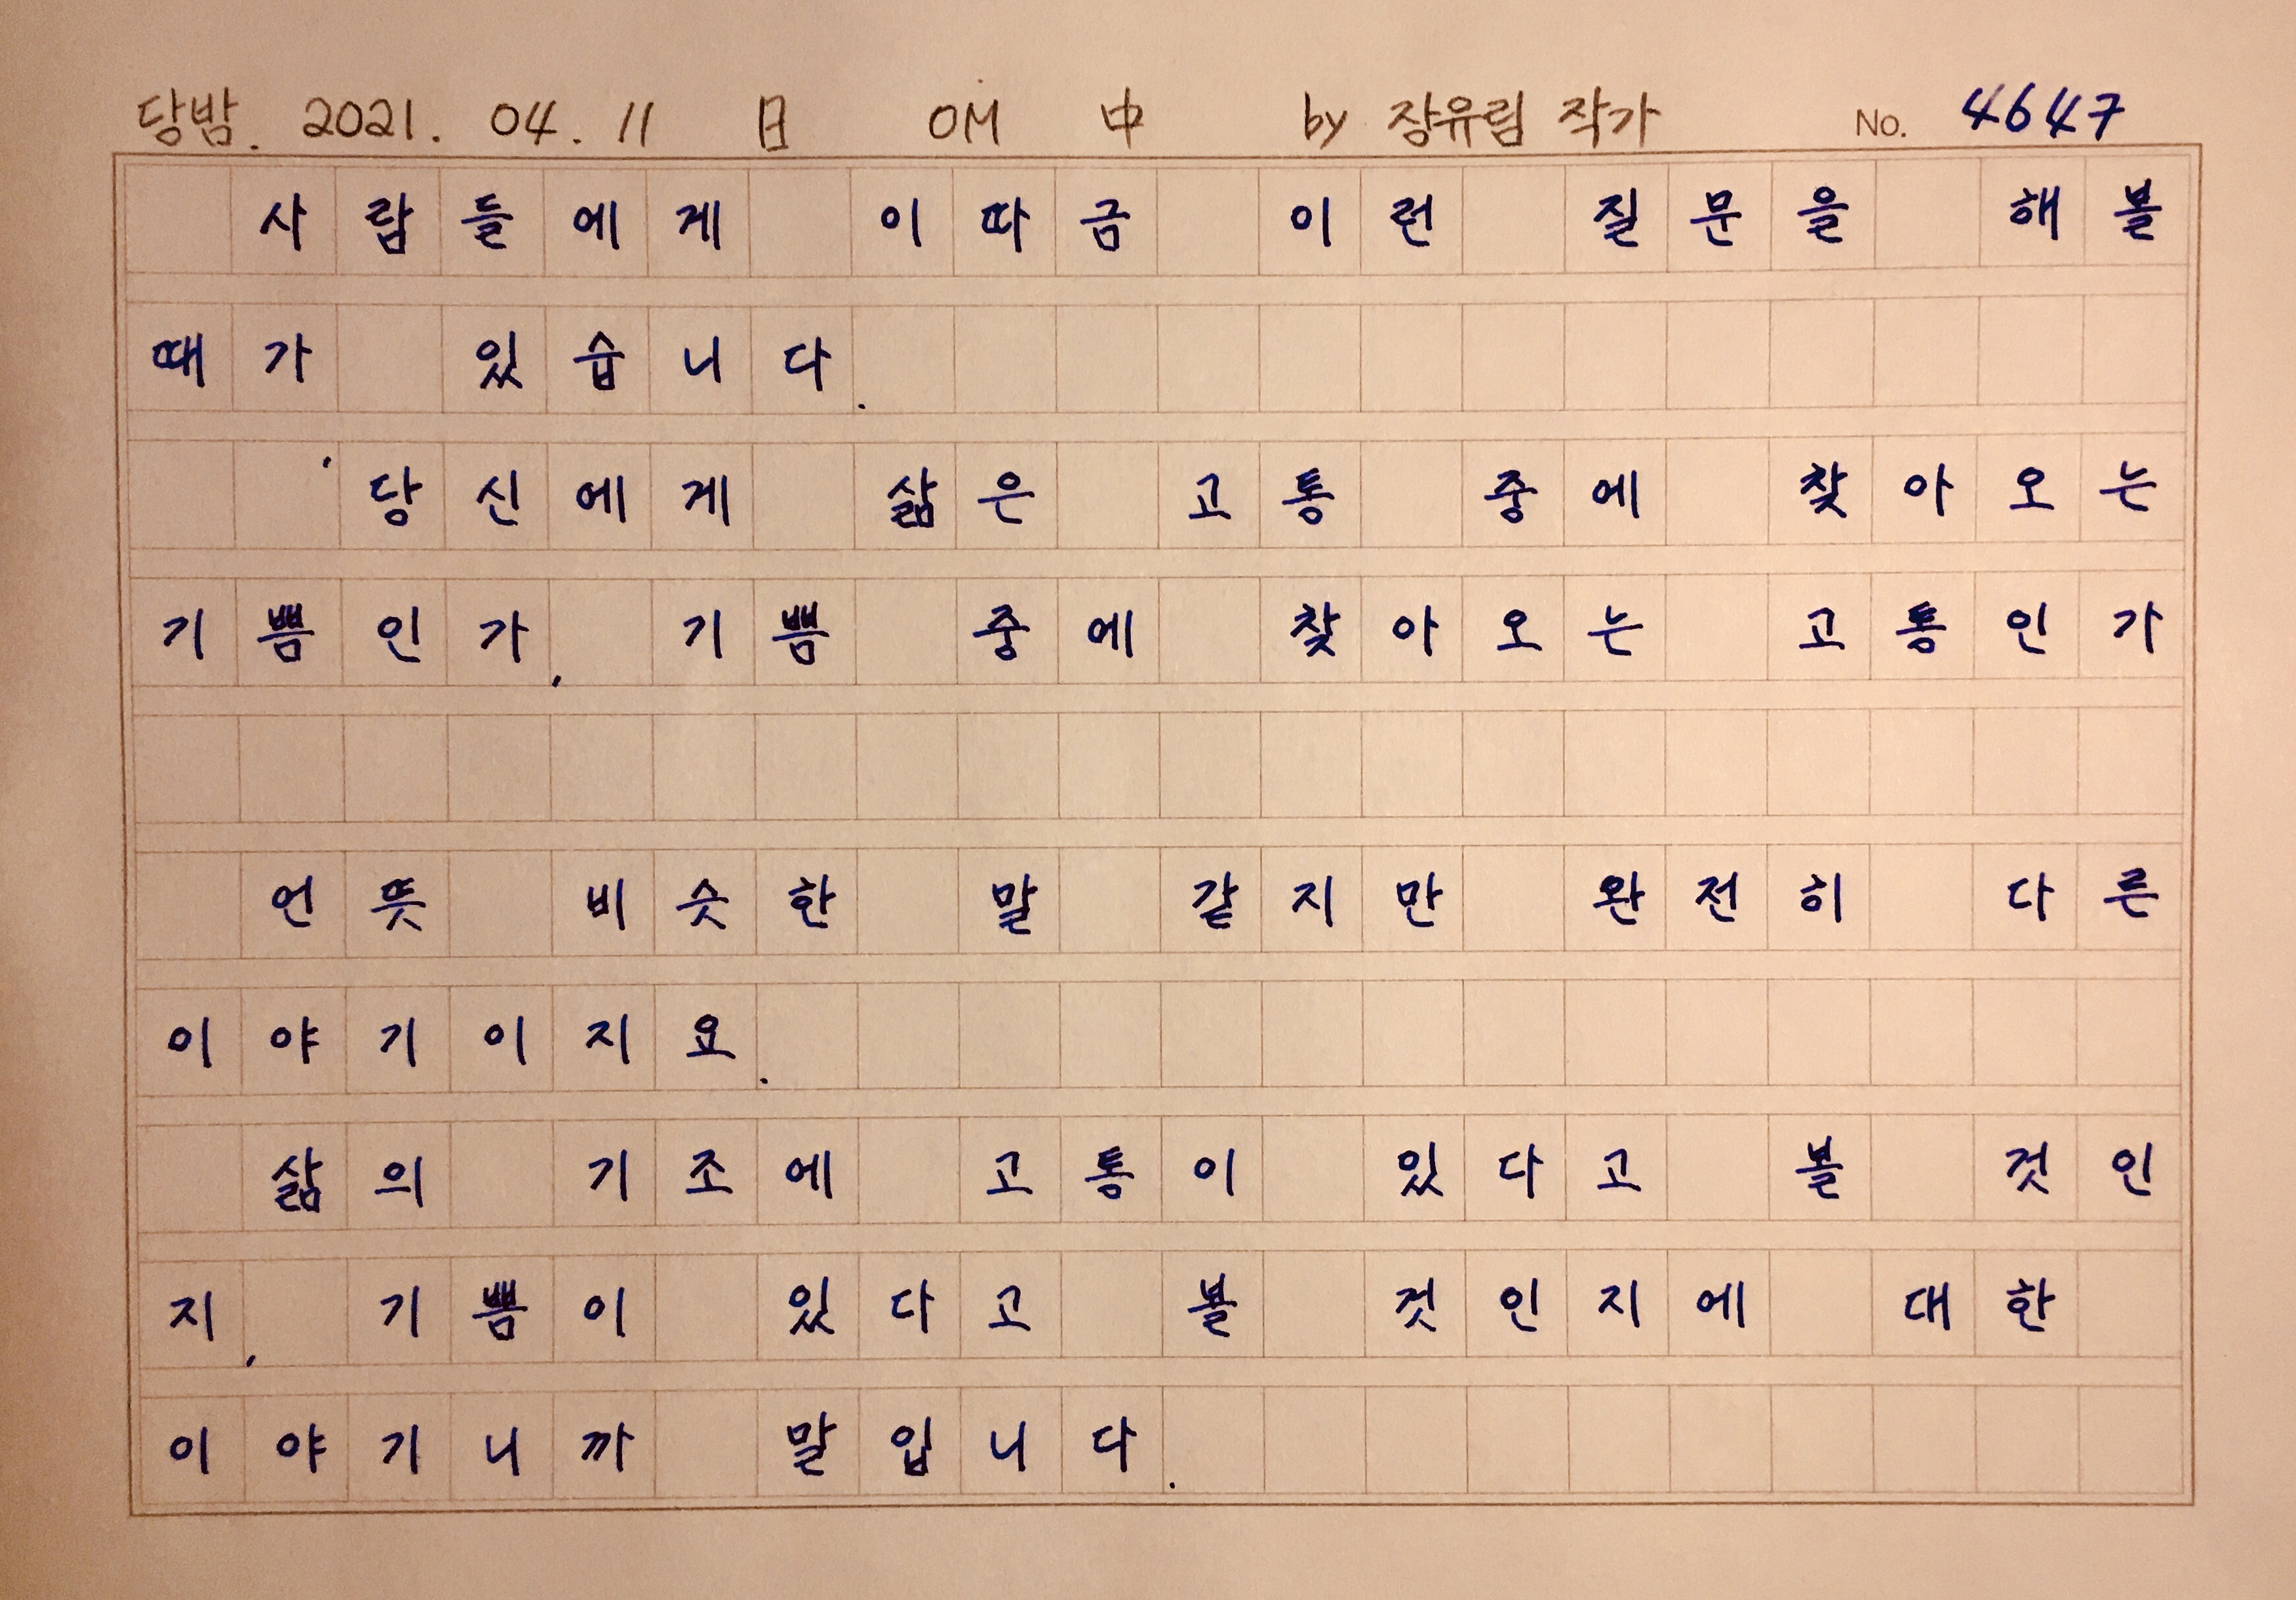 당밤. 2021. 04. 11 日 OM 中 by 장유림 작가 No. 4647
사람들에게 이따금 이런 질문을 해볼
때가 있습니다.
'당신에게 삶은 고통 중에 찾아오는
기쁨인가, 기쁨 중에 찾아오는 고통인가
언뜻 비슷한 말 같지만 완전히 다른
이야기이지요.
삶의 기조에 고통이 있다고 볼 것인
지, 기쁨이 있다고 볼 것인지에 대한
이야기니까 말입니다.